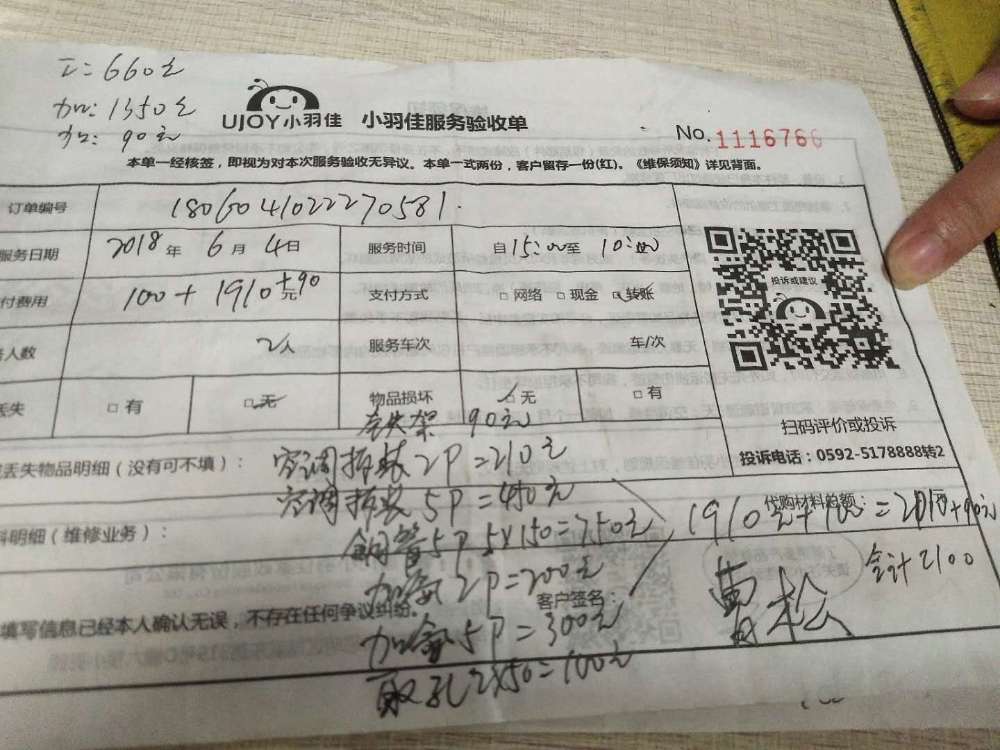 工:660元
加:1350元
加:90元
UJOY小羽佳 小羽佳服务验收单
No.1116766
本单一经核签，即视为对本次服务验收无异议。本单一式两份，客户留存一份(红)。《维保须知》详见背面。
订单编号 1806041022270581
服务日期 2018年6月4日 服务时间 自15:00至10:00
付费用 100+1910元+90 支付方式 □网络 □现金 □转账
人数 2人 服务车次 车/次
丢失 □有 □无 物品损坏 □无 □有
投诉或建议
扫码评价或投诉
投诉电话：0592-5178888转2
架 90元
丢失物品明细（没有可不填）： 空调拆装2P=210元
空调拆装5P=450元
代购材料总额：
料明细（维修业务）： 铜管5P 5×150=750元
1910元+100=2010+90元
合计2100
加氟2P=200元
客户签名： 曹松
填写信息已经本人确认无误，不存在任何争议纠纷。
加氟5P=300元
取孔2×50=100元